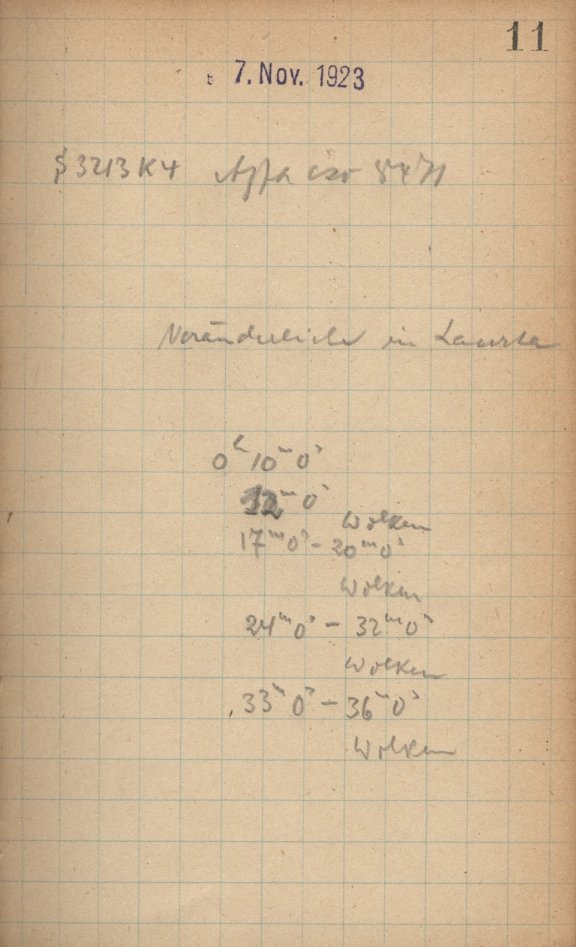 11
7. Nov. 1923
S 3213 K4 Agfa iso 5471
Veränderliche in Lacerta
0ʰ 10ᵐ 0ˢ
12ᵐ 0ˢ
Wolken
17ᵐ 0ˢ – 20ᵐ 0ˢ
Wolken
24ᵐ 0ˢ – 32ᵐ 0ˢ
Wolken
33ᵐ 0ˢ – 36ᵐ 0ˢ
Wolken